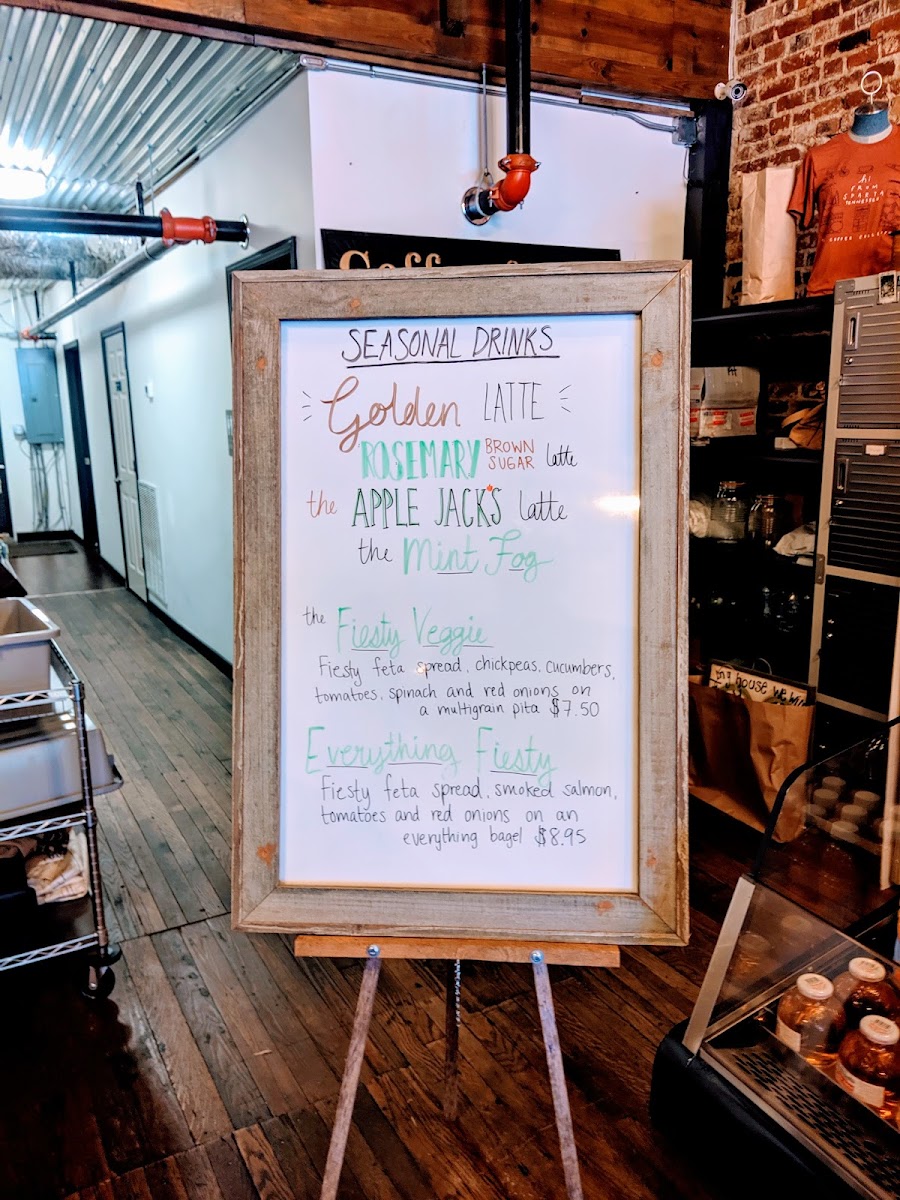 Coffee
SEASONAL DRINKS
Golden LATTE
ROSEMARY BROWN SUGAR latte
the APPLE JACK'S latte
the Mint Fog
the Fiesty Veggie
Fiesty feta spread, chickpeas, cucumbers,
tomatoes, spinach and red onions on
a multigrain pita $7.50
Everything Fiesty
Fiesty feta spread, smoked salmon,
tomatoes and red onions on an
everything bagel $8.95
hi
FROM
SPARTA
TENNESSEE
COFFEE
my house